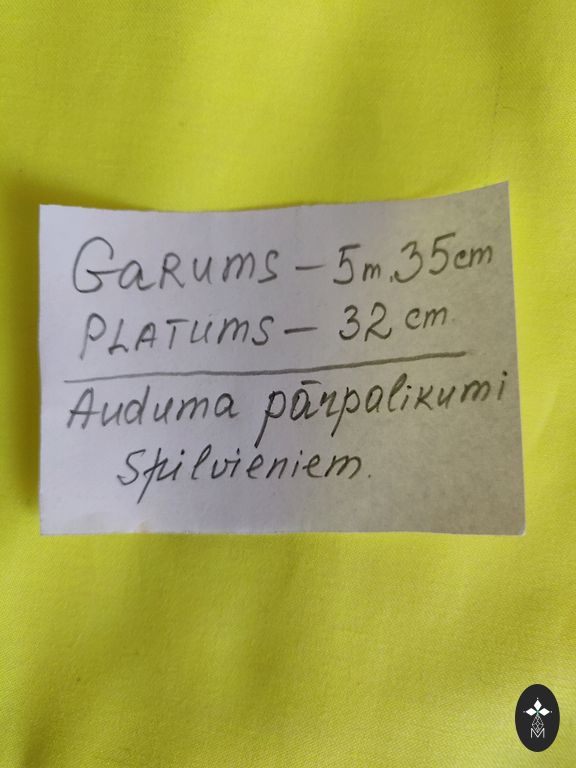 GARUMS – 5m.35cm
PLATUMS – 32 cm.
Auduma pārpalikumi
Spilvieniem.
M